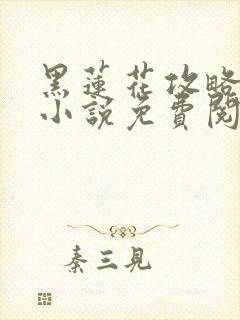 黑蓮花攻略
小說免費閱
秦三見